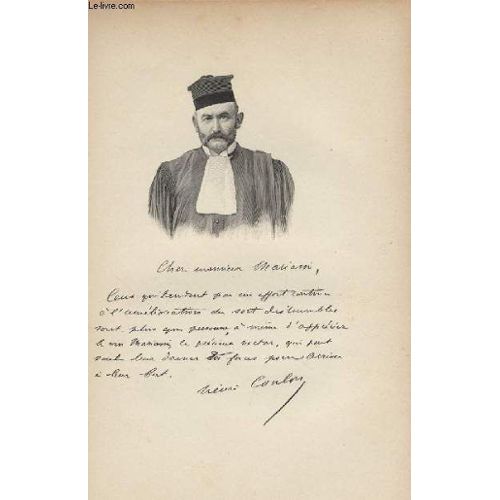 Le-livre.com
Cher monsieur Mariani,
Ceux qui tendent par un effort continu
à l'amélioration du sort des humbles
sont plus que personne, à même d'apprécier
le vin Mariani, le précieux nectar, qui peut
seul leur donner des forces pour arriver
à leur but.
Henri Coulon